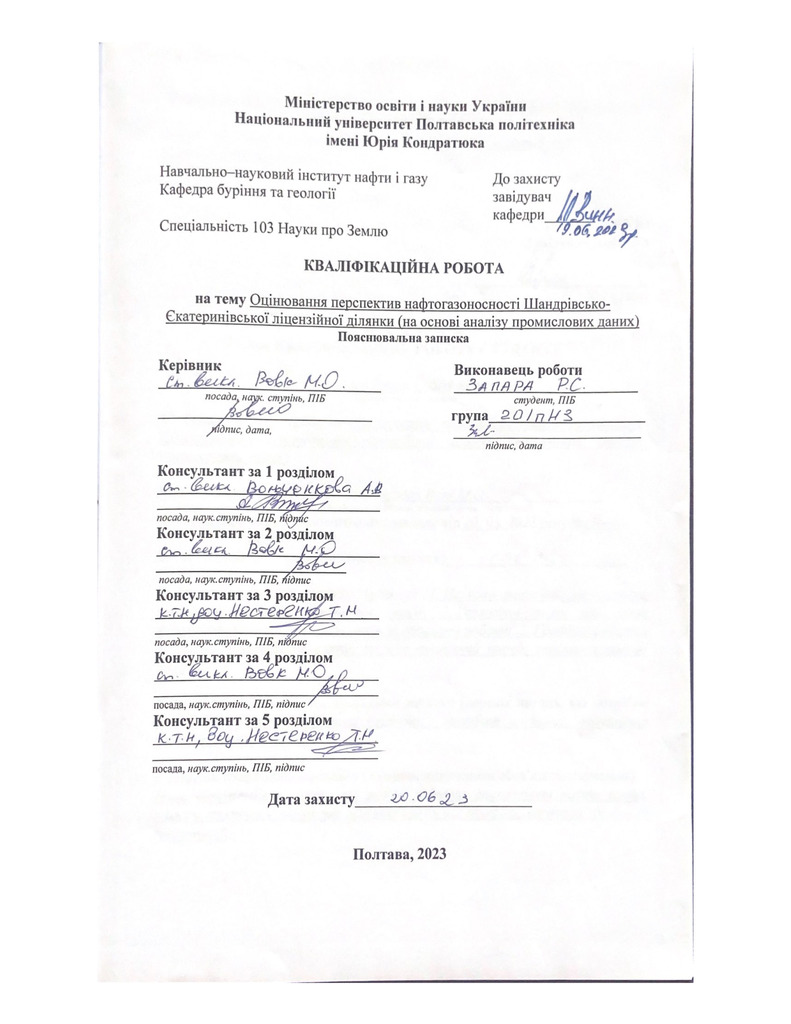 Міністерство освіти і науки України
Національний університет Полтавська політехніка
імені Юрія Кондратюка
Навчально–науковий інститут нафти і газу
Кафедра буріння та геології
До захисту
завідувач
кафедри
Спеціальність 103 Науки про Землю
КВАЛІФІКАЦІЙНА РОБОТА
на тему Оцінювання перспектив нафтогазоносності Шандрівсько-
Єкатеринівської ліцензійної ділянки (на основі аналізу промислових даних)
Пояснювальна записка
Керівник
ст. викл. Вовк М.О.
посада, наук. ступінь, ПІБ
підпис, дата,
Виконавець роботи
ЗАПАРА Р.С.
студент, ПІБ
група 201пНЗ
підпис, дата
Консультант за 1 розділом
ст. викл
посада, наук.ступінь, ПІБ, підпис
Консультант за 2 розділом
ст. викл Вовк М.О
посада, наук.ступінь, ПІБ, підпис
Консультант за 3 розділом
к.т.н, доц. Нестеренко Т.М
посада, наук.ступінь, ПІБ, підпис
Консультант за 4 розділом
ст. викл. Вовк М.О,
посада, наук.ступінь, ПІБ, підпис
Консультант за 5 розділом
к.т.н, доц. Нестеренко Т.М
посада, наук.ступінь, ПІБ, підпис
Дата захисту 20.06 23
Полтава, 2023